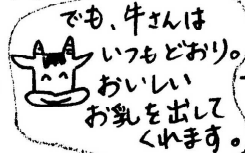 でも、牛さんは
いつもどおり。
おいしい
お乳を出して
くれます。